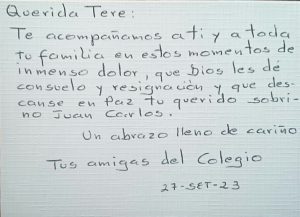 Querida Tere:
Te acompañamos a ti y a toda
tu familia en estos momentos de
inmenso dolor, que Dios les dé
consuelo y resignación y que des-
canse en Paz tu querido sobri-
no Juan Carlos.
Un abrazo lleno de cariño
Tus amigas del Colegio
27-SET-23